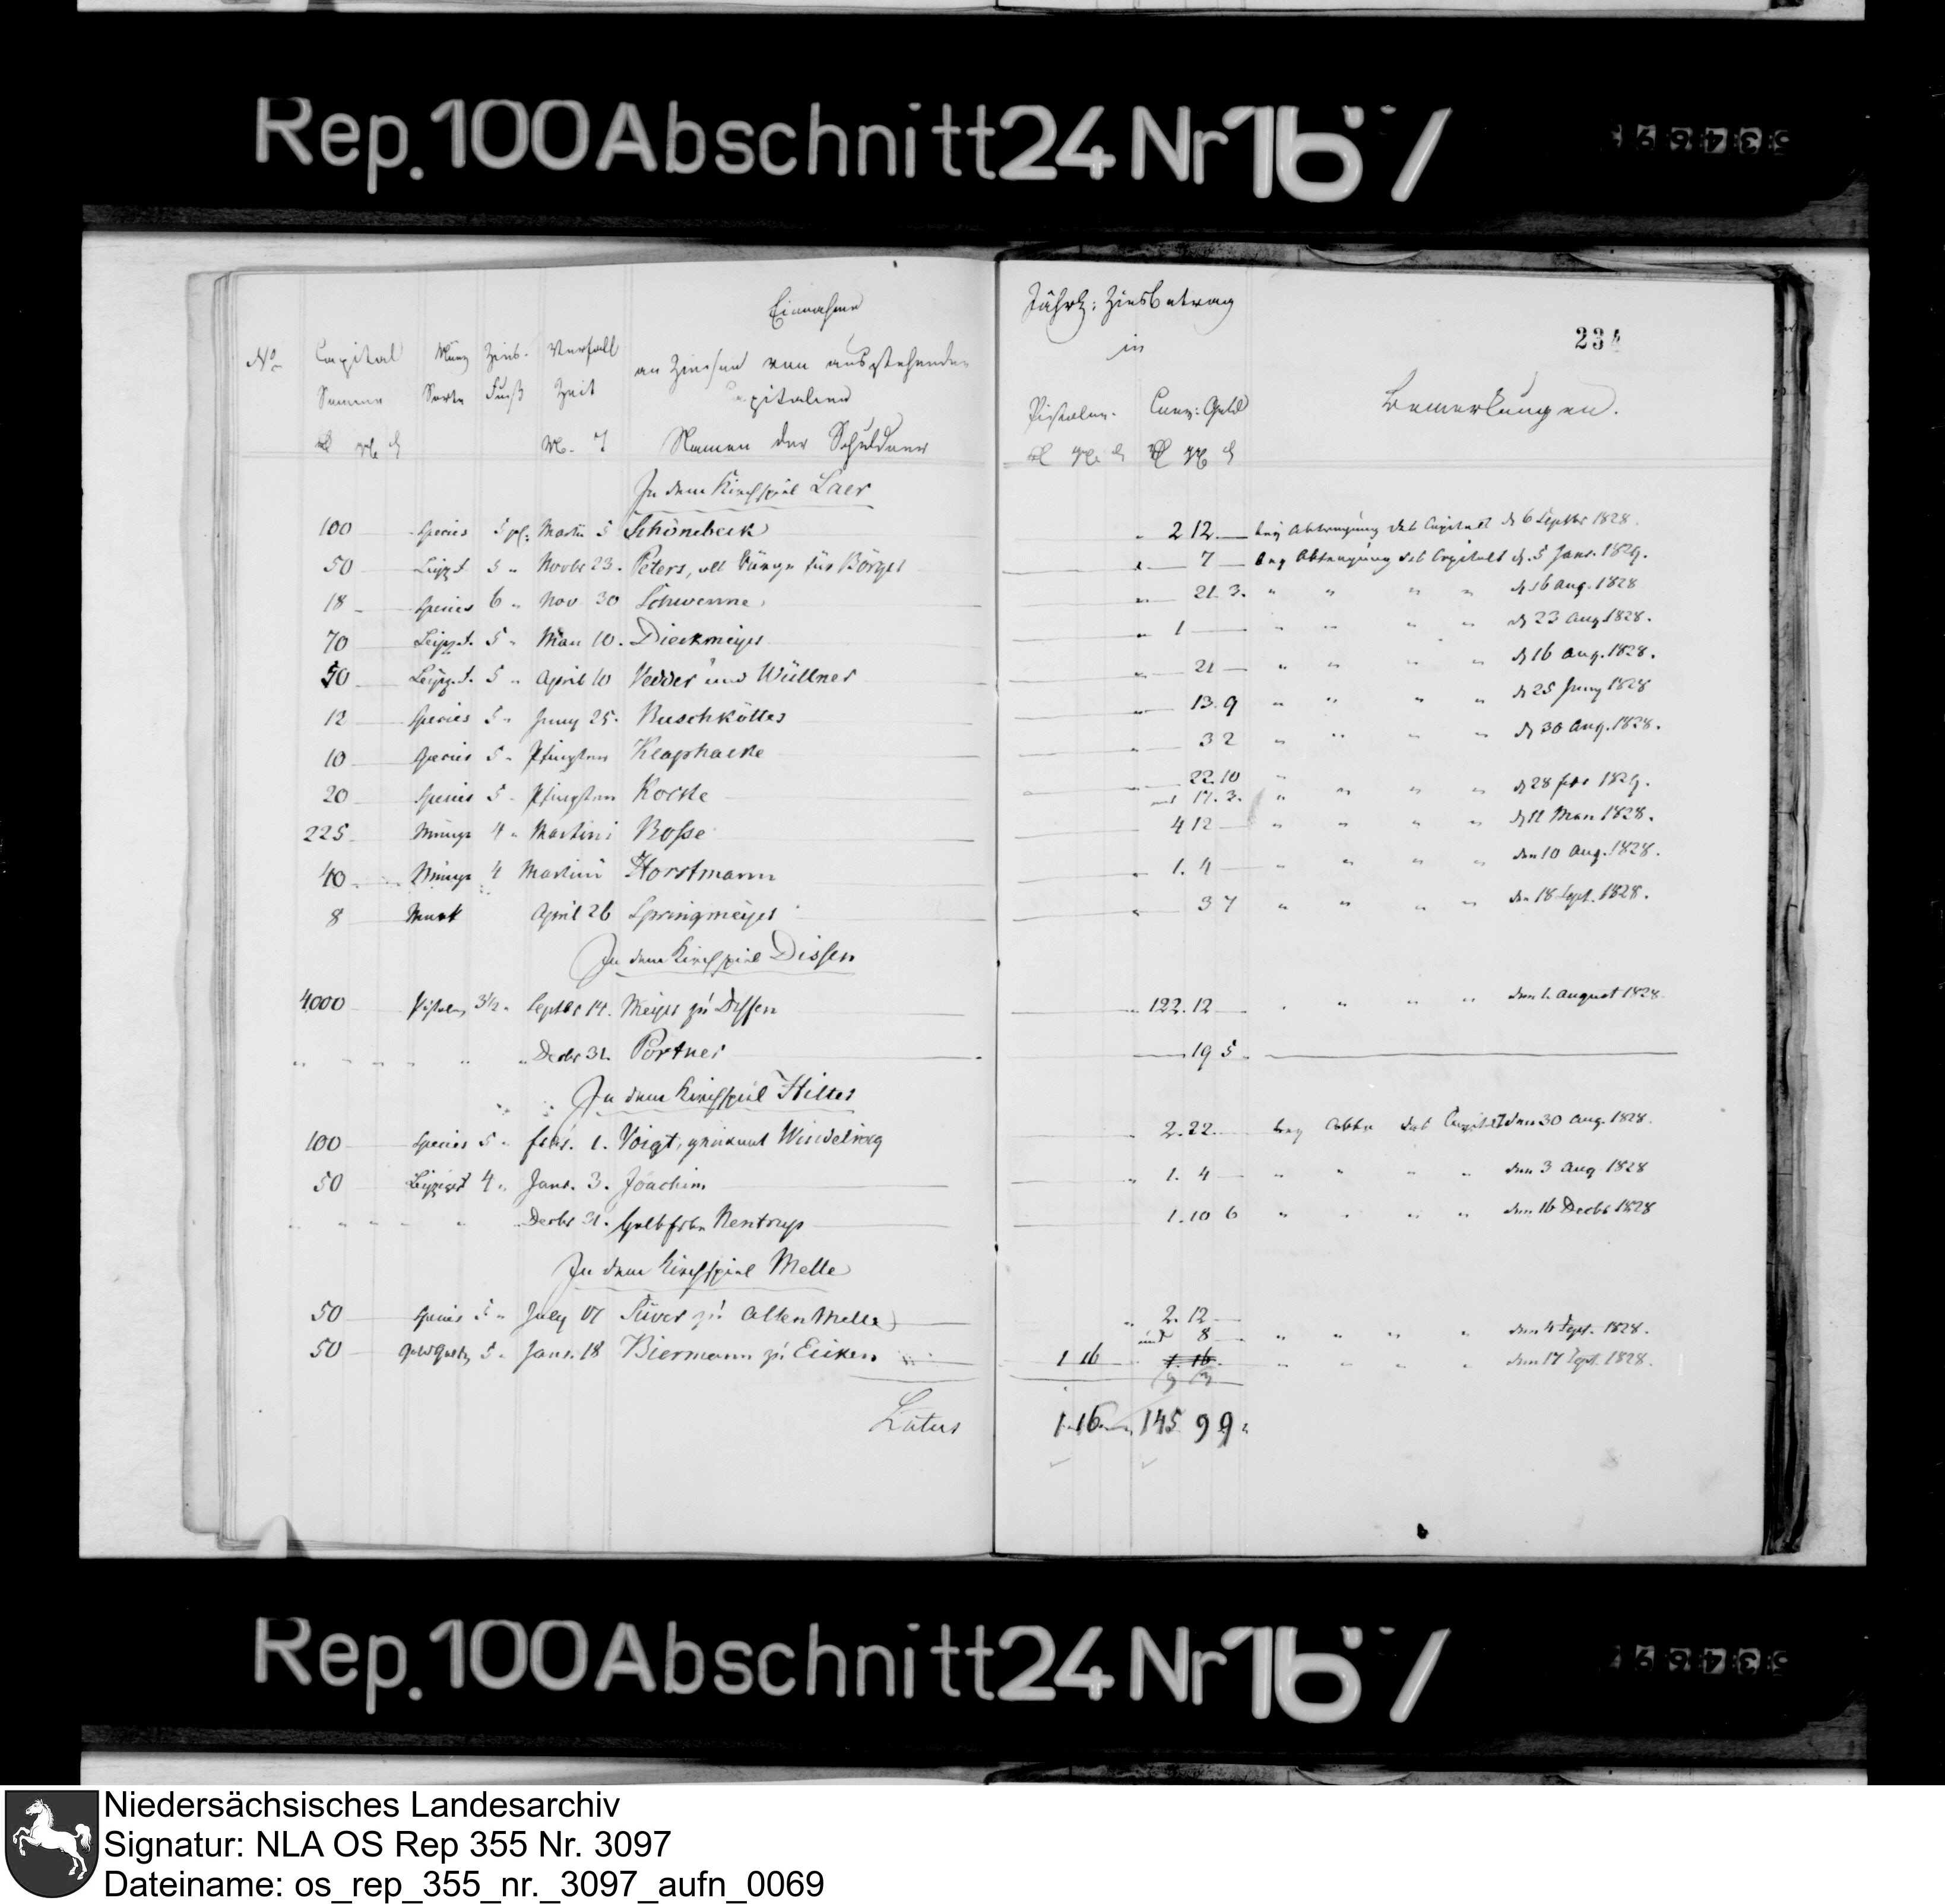 Rep. 100 Abschnitt 24 Nr 167
Einnahme
No Capital Münz Zins- Verfall an Zinsen von ausstehenden
Summe Sorte Fuß Zeit Capitalien
Namen der Schuldner
In dem Kirchspiel Laer
100 Species 5 Martii 5 Schönebeck
50 5 " Novbr 23. Peters, als Bürge für Börger
18 Species 6 " Nov. 30 Schwenne
70 5 " 10. Dieckmeyer
50 5 " April 10 Vedder und Wüllner
12 Species 5 " Juny 25. Buschkötter
10 Species 5 " Pfingsten Klaphacke
20 Species 5 " Pfingsten Kocke
225 Münze 4 " Martini Bosse
40 Münze 4 Martini Horstmann
8 Mark April 26 Springmeyer
In dem Kirchspiel Dissen
4000 Pistolen 3½ " Septbr 14. Meyer zu Dissen
" " " " " " Decbr 31. Portner
In dem Kirchspiel Hilter
100 Species 5 " febr. 1. Voigt, genannt Windeling
50 4 " Janr. 3. Joachim
" " " " " Decbr 31. Halbfrbe Nentrup
In dem Kirchspiel Melle
50 Species 5 " July 17 Suver zu Alten Melle
50 5 " Janr. 18 Biermann zu Eicken
Latus
Jährl: Zinsbetrag
in
234
Pistolen. Conv: Geld Bemerkungen.
" 2 12 bey Abtragung des Capitals d 6 Septbr 1828.
" 7 bey Abtragung des Capitals d. 5 Janr. 1829.
" 21 3. " " " " d 16 Aug. 1828
" 1 " " " " d 23 Aug 1828.
" 21 " " " " d 16 Aug. 1828.
" 13. 9 " " " " d 25 Juny 1828
" 3 2 " " " " d 30 Aug. 1828.
22. 10 "
und 17. 3. " " " " d 28 febr 1829.
4 12 " " " " d 11 1828.
" 1. 4 " " " " den 10 Aug. 1828.
" 3 7 " " " " den 18 Sept. 1828.
" 122. 12 " " " " den 1. August 1828
19 5
" 2. 22. bey Abtr des Capitals den 30 Aug. 1828.
" 1. 4 " " " " den 3 Aug 1828
1. 10 6 " " " " den 16 Decbr 1828
" 2. 12
und 8 " " " " den 4 Sept. 1828.
1 16 " 1. 16. " " " " den 17 Sept. 1828.
1 16 " 145 9 9
Rep. 100 Abschnitt 24 Nr 167
Niedersächsisches Landesarchiv
Signatur: NLA OS Rep 355 Nr. 3097
Dateiname: os_rep_355_nr._3097_aufn_0069